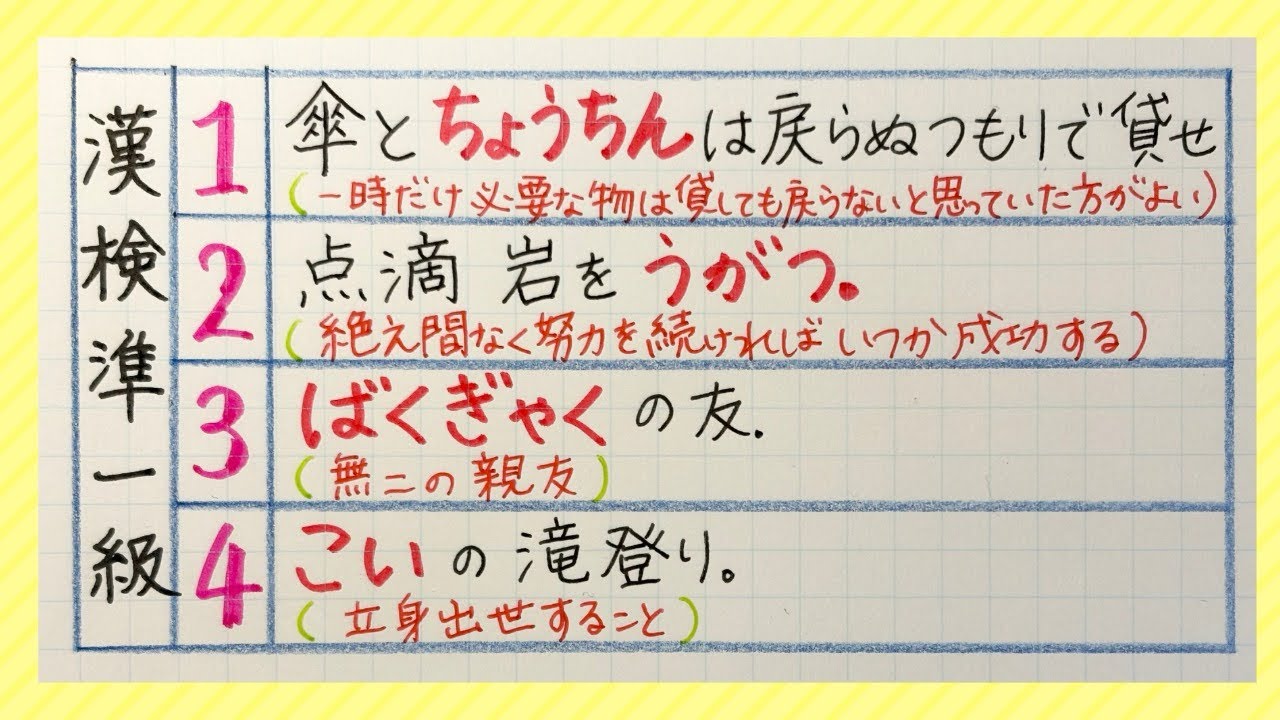 漢検準一級
1
傘とちょうちんは戻らぬつもりで貸せ
(一時だけ必要な物は貸しても戻らないと思っていた方がよい)
2
点滴 岩をうがつ。
(絶え間なく努力を続ければいつか成功する)
3
ばくぎゃくの友.
(無二の親友)
4
こいの滝登り。
(立身出世すること)